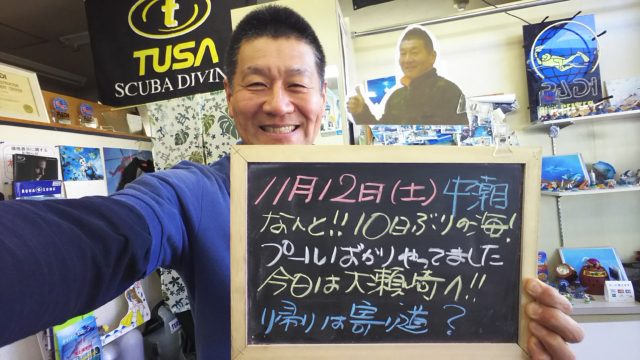 TUSA
SCUBA DIVING
PADI
11月12日(土) 中潮
なんと!!10日ぶりの海!
プールばかりやってました
今日は大瀬崎へ!!
帰りは寄り道?